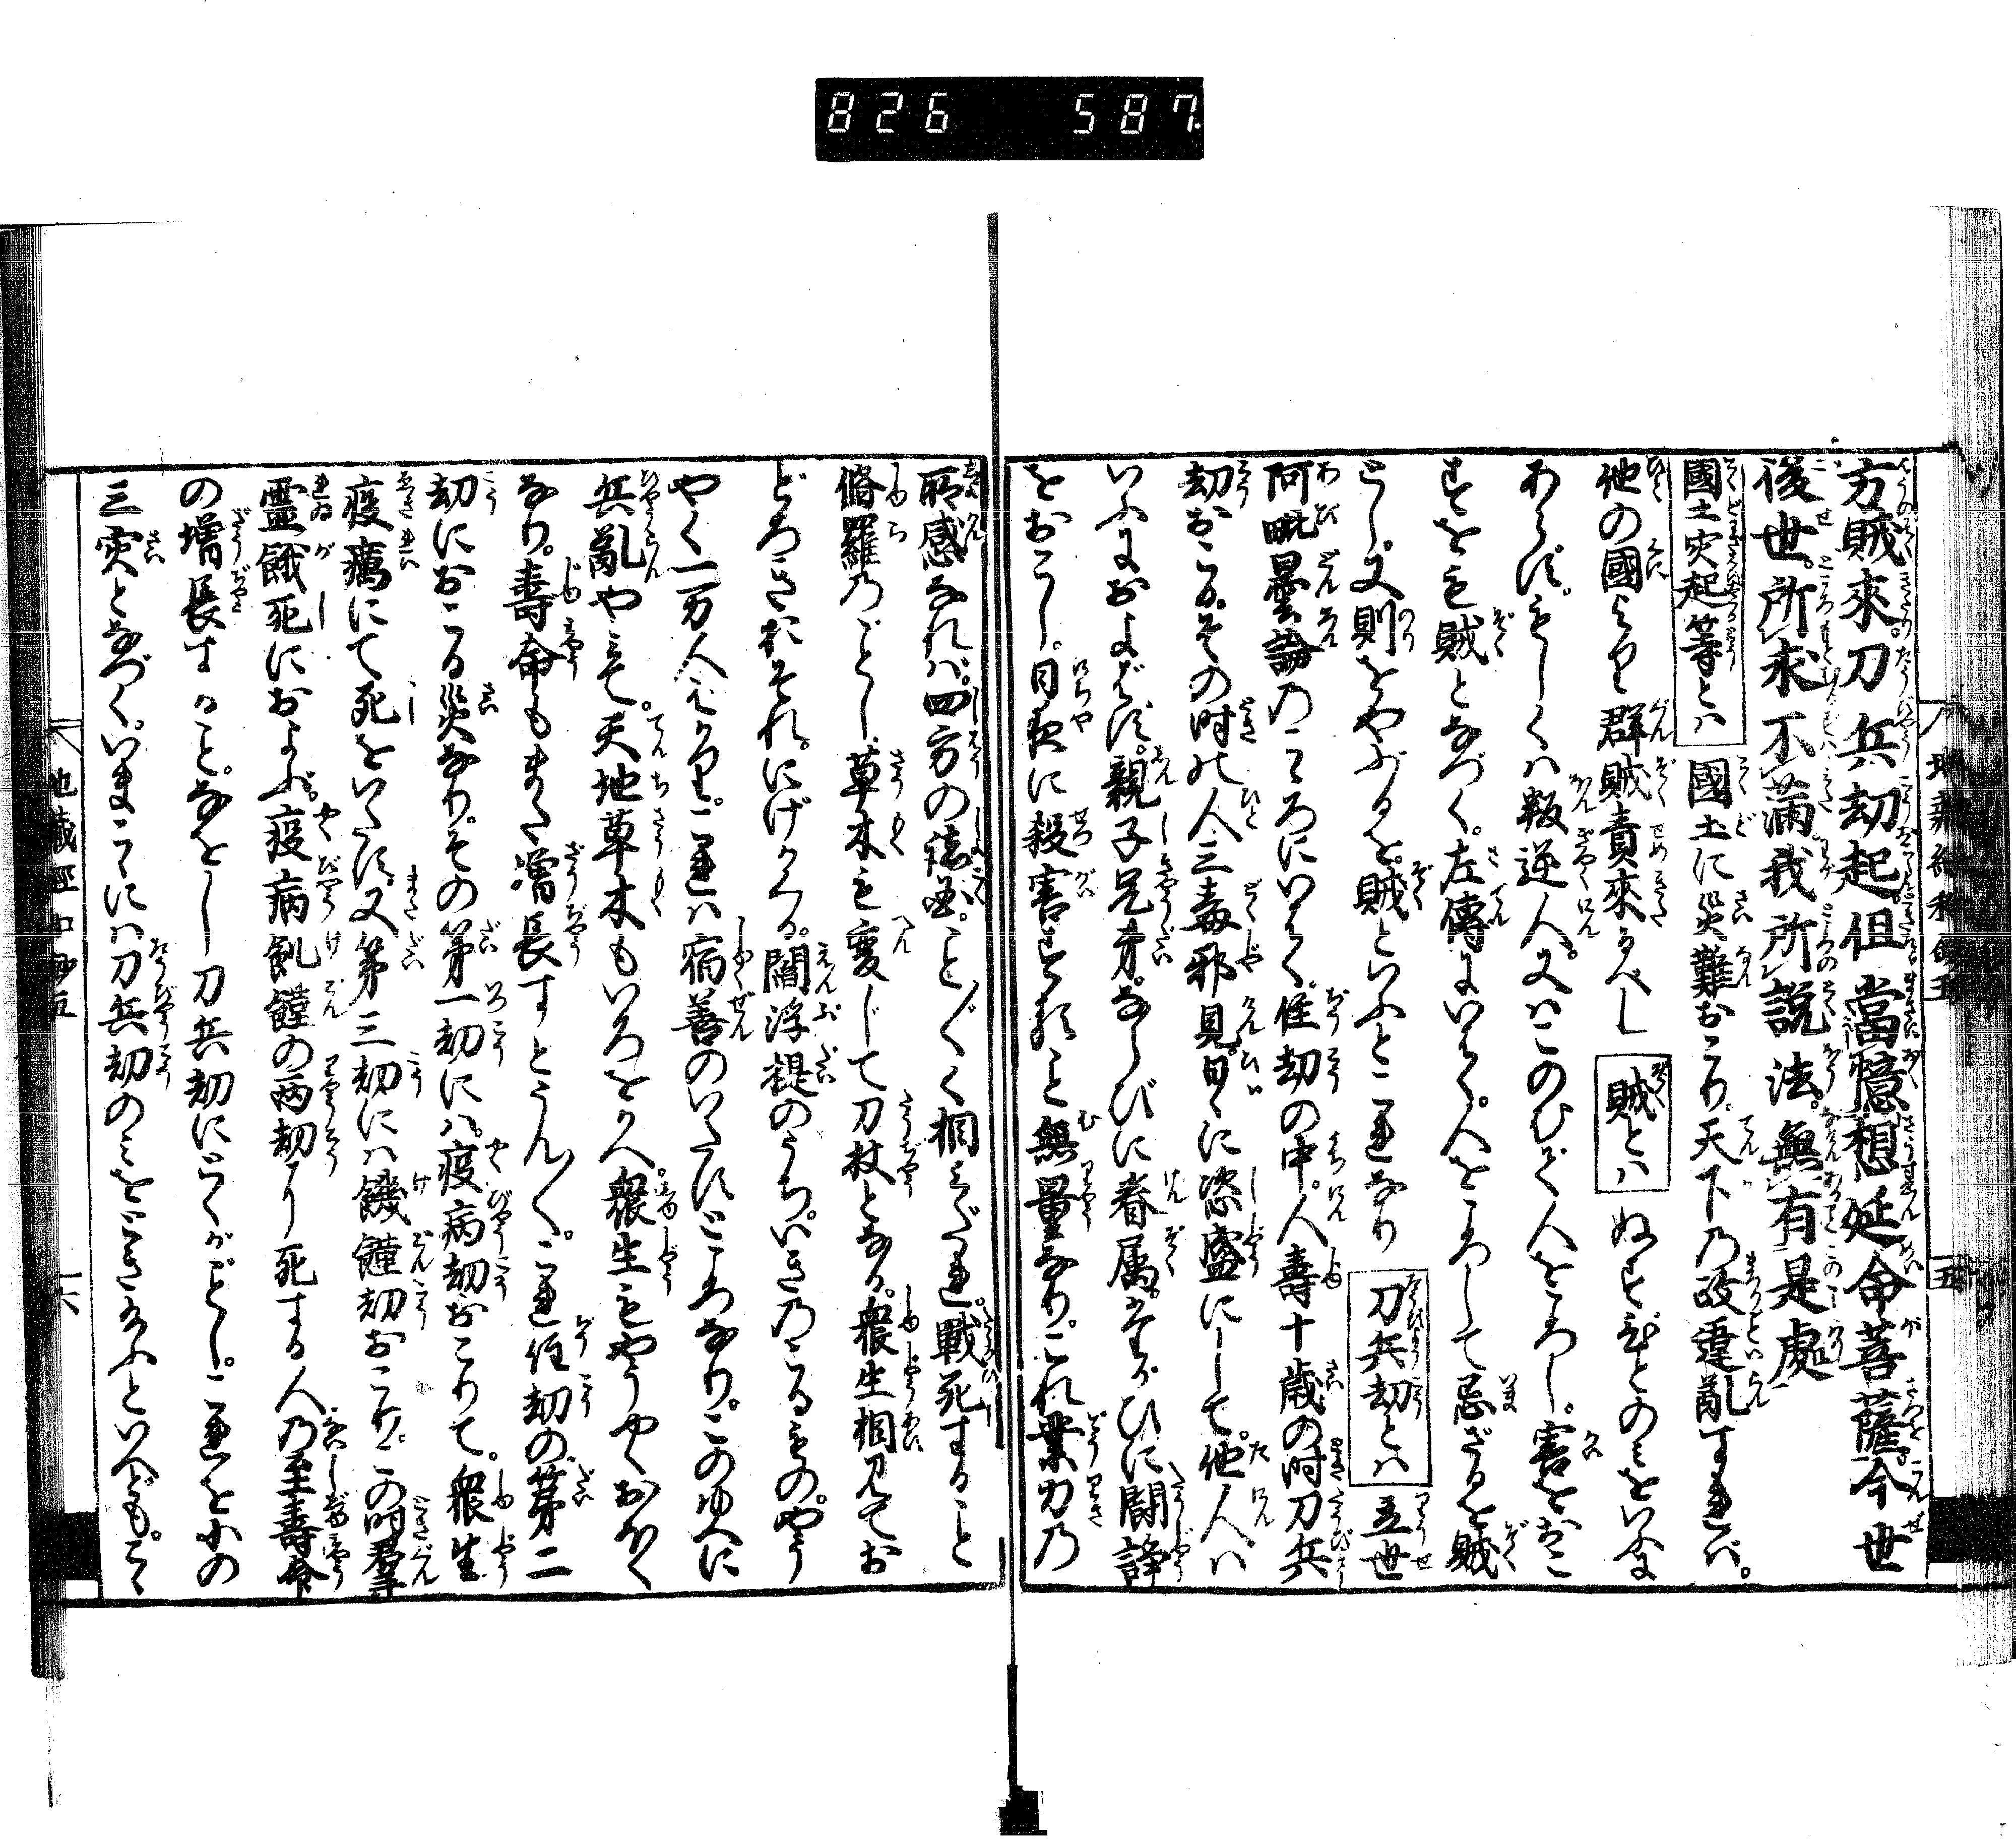 826 587
方賊來刀兵劫起但當憶想延命菩薩今世
後世所求不滿我所說法無有是處
國土灾起等とハ 國土に災難おこり。天下乃政違亂すれバ。
他の國より群賊責來るべし 賊とハ ぬすびとのミをいふに
あらず。もしくハ叛逆人。又ハこのむで人をころし。害をおこ
すをも賊となづく。左傳にいはく。人をころして忌ざるを賊
とし。又則をやぶるを。賊といふとこれなり 刀兵劫とハ 立世
阿毗曇論のこゝろにいはく。住劫の中。人壽十歳の时刀兵
劫おこる。その时の人三毒邪見。日〻に恣盛にして。他人ハ
いふにおよばず。親子兄弟。ならびに眷属。たがひに闘諍
をおこし。日夜に殺害する事無量なり。これ業力乃
所感なれバ。四方の徒衆。こと〴〵く相みだれ。戰死すること
脩羅乃ごとし。草木も変じて刀杖となる。衆生相見てお
どろきおそれ。にげかくる。閻浮提のうち。いきのこるもの。やう
やく一万人ばかり。これハ宿善のいたすところなり。このゆへに
兵亂やミて。天地草木もいろをかへ。衆生もやうやくおほく
なり。壽命もまた増長すとうん〳〵。これ住劫の第二
劫におこる災なり。その第一劫にハ。疫病劫おこりて。衆生
疫癘にて死をいたす。又第三劫にハ饑饉劫おこり。この时羣
霊餓死におよぶ。疫病飢饉の両劫より死する人乃至壽命
の増長すること。なをし刀兵劫にとくがごとし。これを小の
三灾となづく。いまこゝにハ刀兵劫のミをときたまふといへども。こゝ
地藏經和鈔五 五
地藏經和鈔五 六